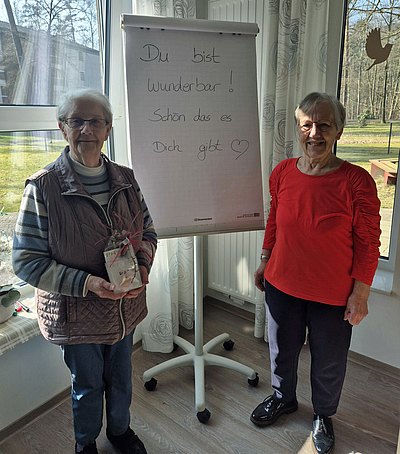 Du bist
wunderbar!
Schön das es
Dich gibt ♡